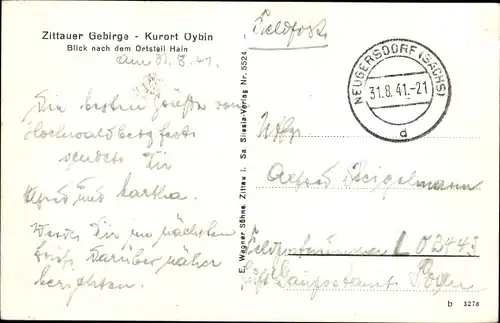 Zittauer Gebirge - Kurort Oybin
Blick nach dem Ortsteil Hain
am 31.8.41.
Die besten Grüße vom
Hochwaldbergfest
sendet Dir
und Martha.
Werde Dir im nächsten
Brief darüber näher
berichten.
E. Wagner Söhne, Zittau i. Sa. Silesia-Verlag Nr. 5524
Feldpost
NEUGERSDORF (SACHS)
31.8.41.-21
d
Uffz.
Alfred
Feldpostnummer L 02443
Luftgaupostamt Posen
b 3276